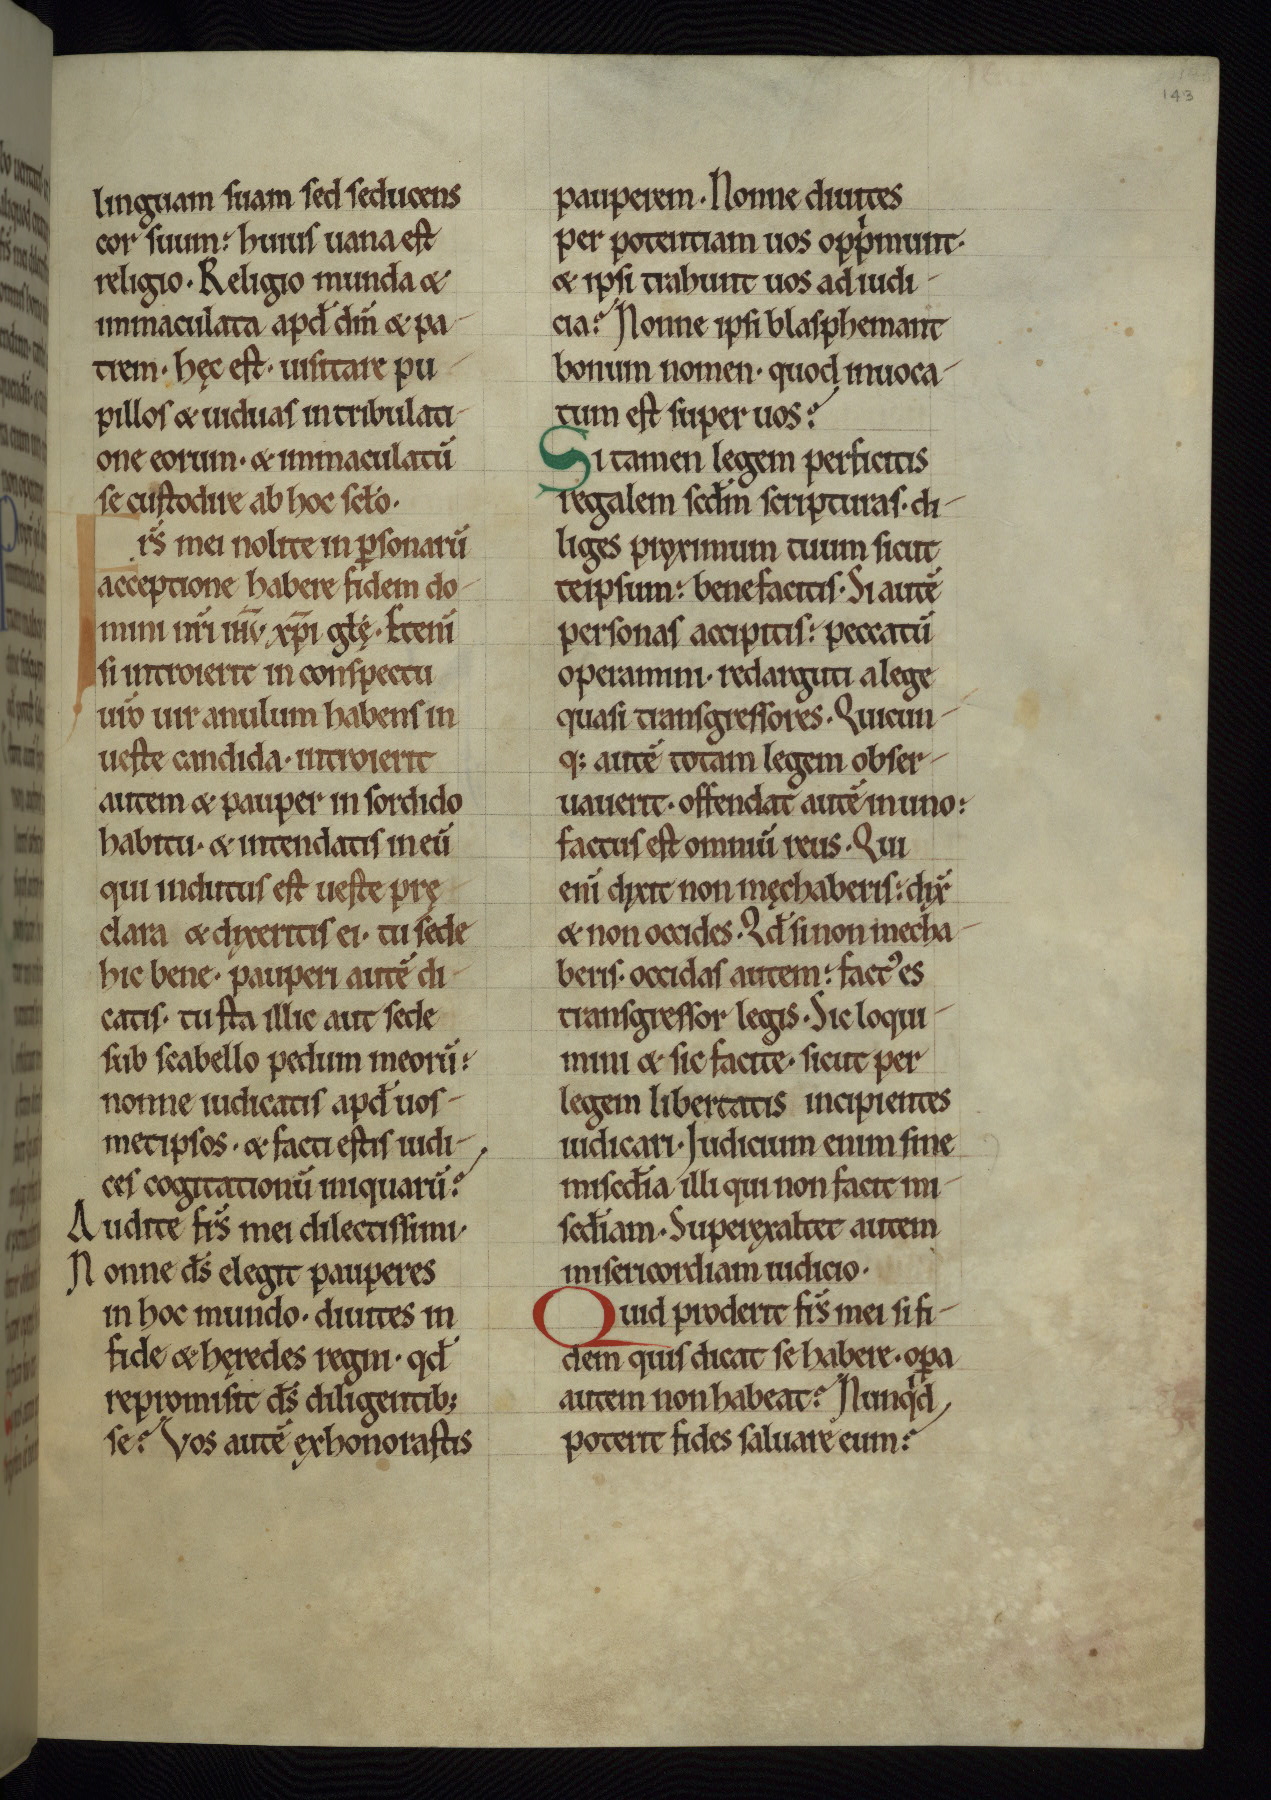 143
linguam suam sed seducens
cor suum: huius uana est
religio. Religio munda &
inmaculata apd̄ dm̄ & pa-
trem. hęc est. uisitare pu-
pillos & uiduas in tribulati-
one eorum. & inmaculatū
se custodire ab hoc sc̄lo.
Frs̄ mei nolite in ꝑsonarū
acceptione habere fidem do-
mini nr̄i ih̄u xp̄i gl̄ę. Eteni̅
si introierit in conspectu
ur̄o uir anulum habens in
ueste candida. introierit
autem & pauper in sordido
habitu. & intendatis in eū
qui indutus est ueste prę-
clara & dixeritis ei. tu sede
hic bene. pauperi autē di-
catis. tu sta illic aut sede
sub scabello pedum meorū:
nonne iudicatis apd̄ uos-
metipsos. & facti estis iudi-
ces cogitationū iniquarū?
Audite frs̄ mei dilectissimi.
Nonne ds̄ elegit pauperes
in hoc mundo. diuites in
fide & hęredes regni. qd̄
repromisit ds̄ diligentib;
se? Vos autē exhonorastis
pauperem. Nonne diuites
per potentiam uos opp̍munt.
& ipsi trahunt uos ad iudi-
cia? Nonne ipsi blasphemant
bonum nomen. quod inuoca-
tum est super uos?
Si tamen legem perficitis
regalem scd̄m scripturas. di-
liges proximum tuum sicut
teipsum: benefacitis. Si autē
personas accipitis: peccatū
operamini. redarguti a lege
quasi transgressores. Quicun-
q; autē totam legem obser-
uauerit. offendat autē in uno:
factus est omniū reus. Qui
eni̅ dixit non męchaberis: dix̄
& non occides. Qd̄ si non mecha-
beris. occidas autem: fact᾽ es
transgressor legis. Sic loqui-
mini & sic facite. sicut per
legem libertatis incipientes
iudicari. Judicium enim sine
misedīa illi qui non facit mi-
sedīam. Superexaltet autem
misericordiam iudicio.
Quid proderit frs̄ mei si fi-
dem quis dicat se habere. oꝑa
autem non habeat? Nunq̍d
poterit fides saluare eum?